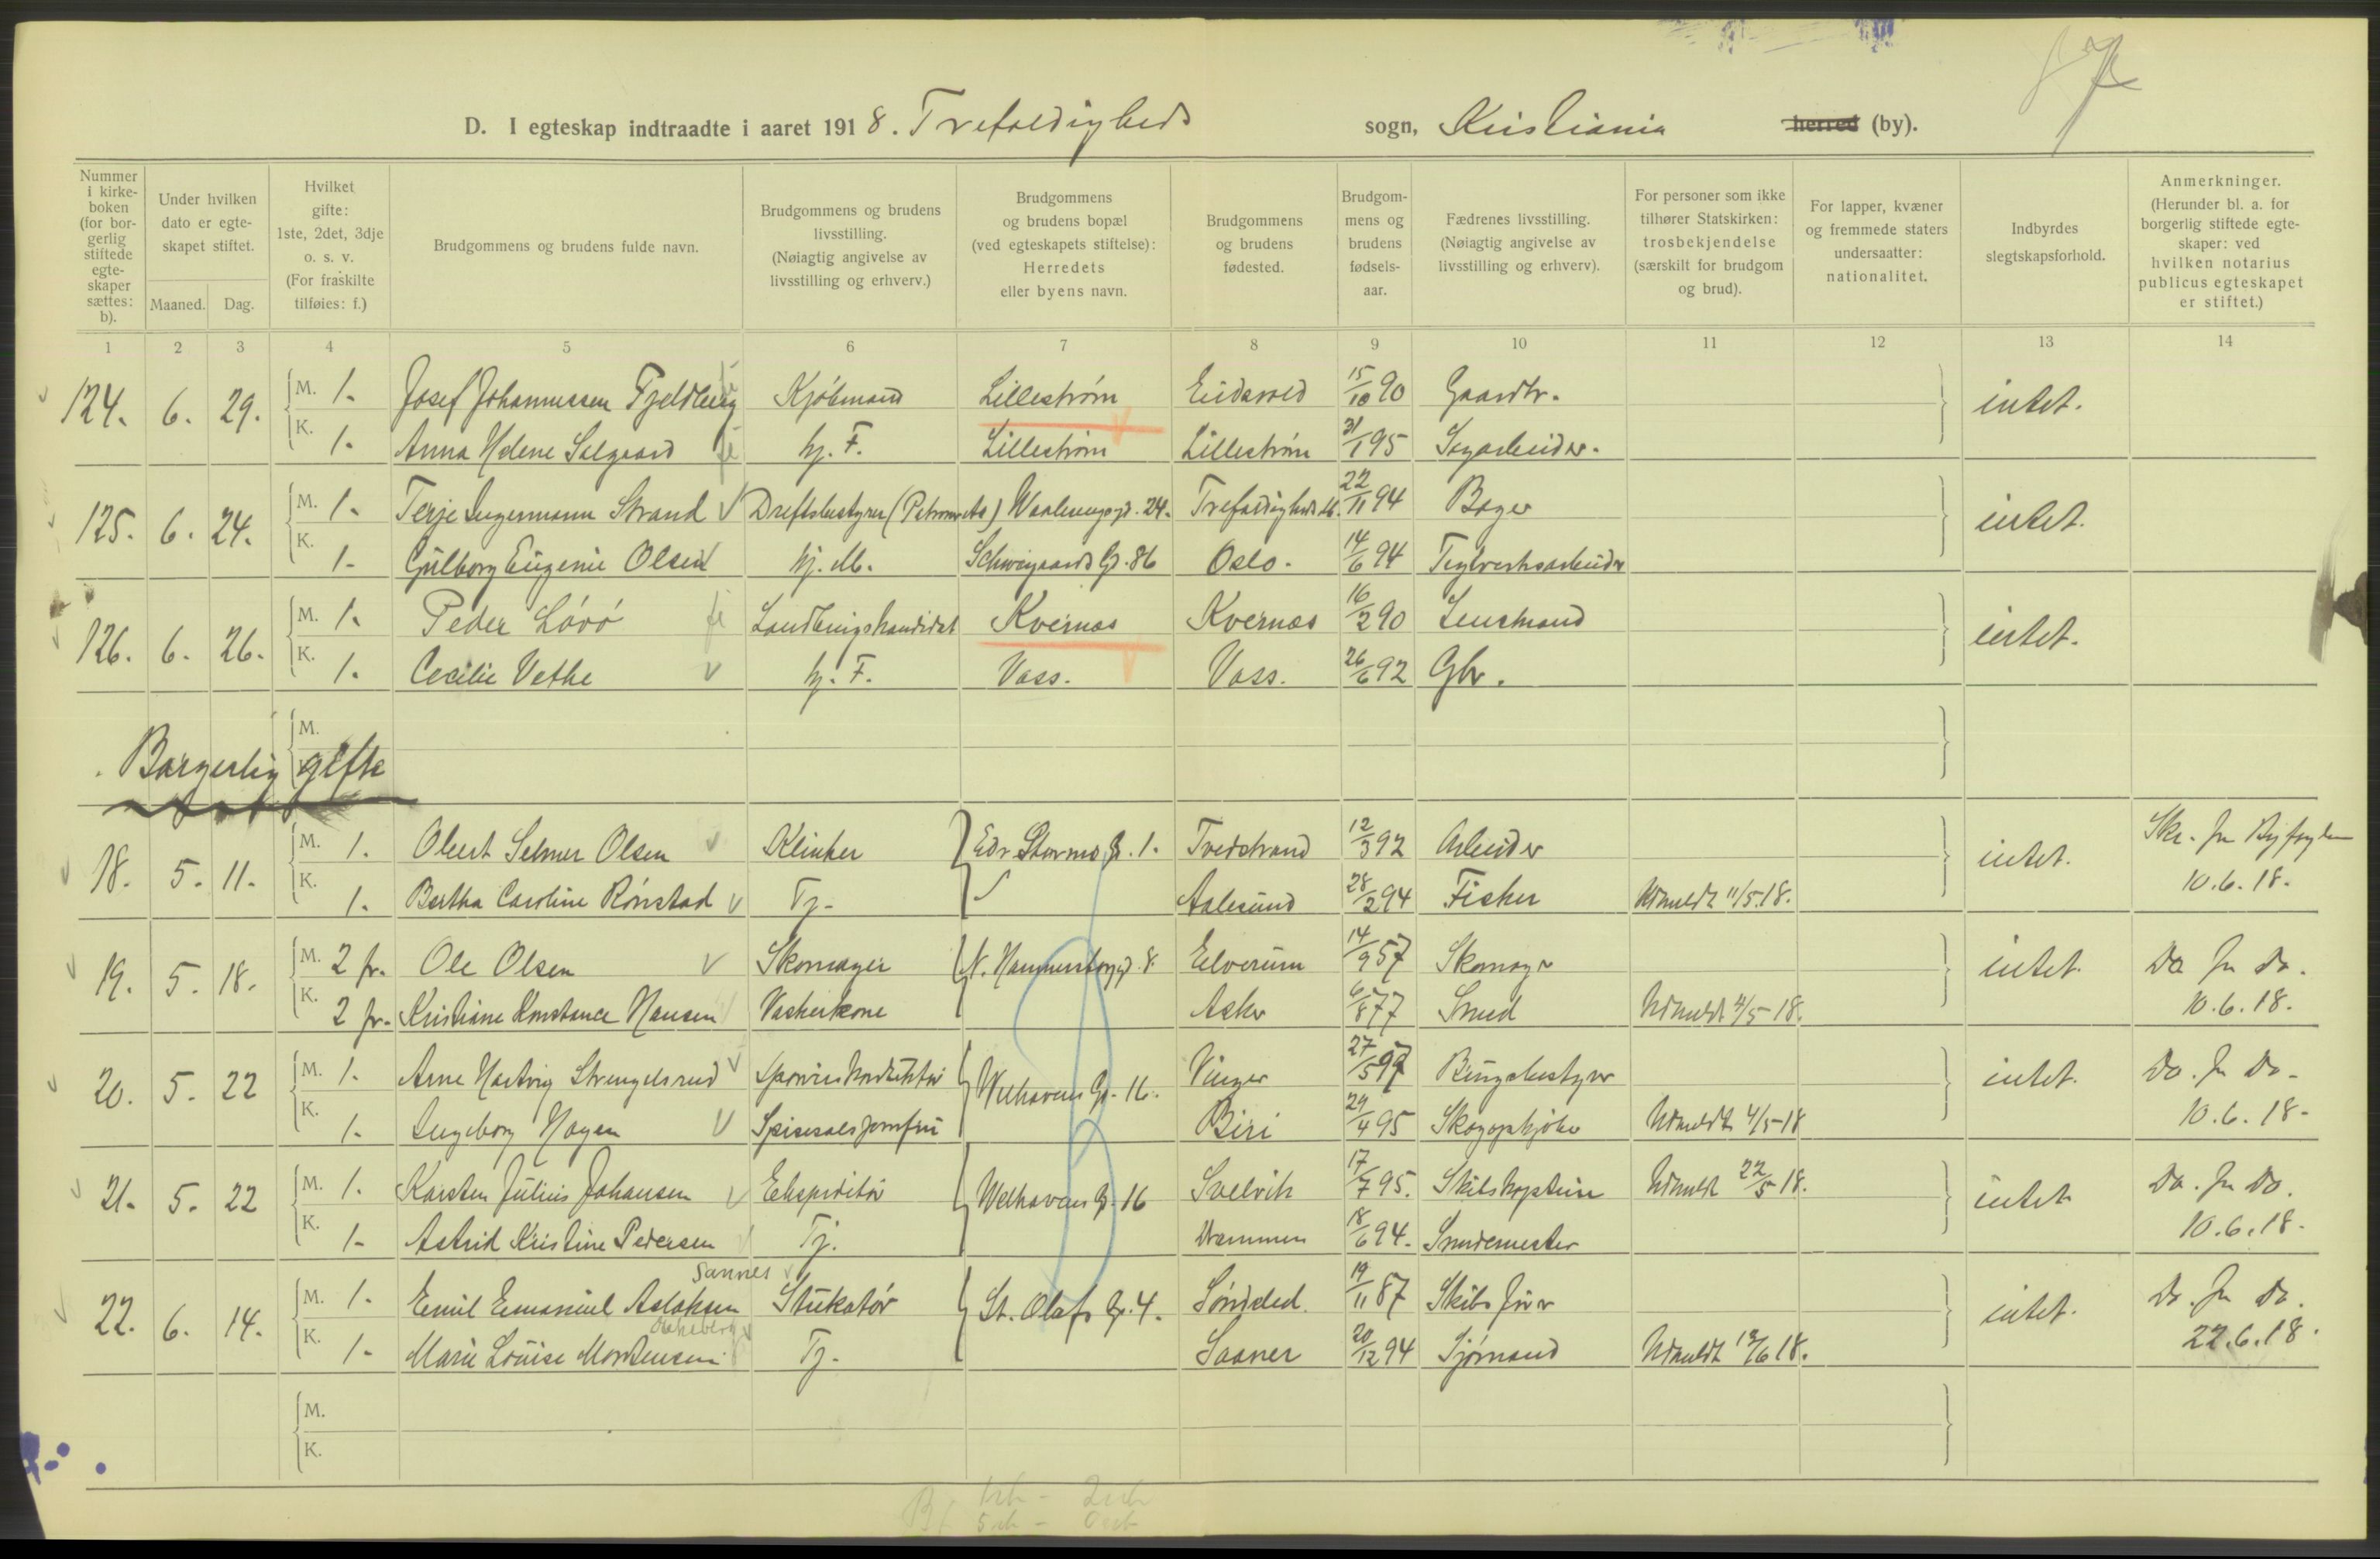 D. I egteskap indtraadte i aaret 1918. Trefoldigheds sogn, Kristiania herred (by).
Nummer i kirkeboken (for borgerlig stiftede egteskaper sættes: b).
Under hvilken dato er egteskapet stiftet.
Maaned. Dag.
Hvilket gifte: 1ste, 2det, 3dje o. s. v. (For fraskilte tilføies: f.)
Brudgommens og brudens fulde navn.
Brudgommens og brudens livsstilling. (Nøiagtig angivelse av livsstilling og erhverv.)
Brudgommens og brudens bopæl (ved egteskapets stiftelse): Herredets eller byens navn.
Brudgommens og brudens fødested.
Brudgommens og brudens fødselsaar.
Fædrenes livsstilling. (Nøiagtig angivelse av livsstilling og erhverv).
For personer som ikke tilhører Statskirken: trosbekjendelse (særskilt for brudgom og brud).
For lapper, kvæner og fremmede staters undersaatter: nationalitet.
Indbyrdes slegtskapsforhold.
Anmerkninger. (Herunder bl. a. for borgerlig stiftede egteskaper: ved hvilken notarius publicus egteskapet er stiftet.)
1 2 3 4 5 6 7 8 9 10 11 12 13 14
124. 6. 29. M. 1. Josef Johannessen Fjeldberg Kjöbmand Lillestrøm Eidsvold 15/10 90 Gaardbr. intet.
K. 1. Anna Helene Solgaard hj. F. Lillestrøm Lillestrøm 31/1 95 Sagarbeider.
125. 6. 24. M. 1. Terje Ingemann Strand Driftsbestyrer Waalerenggd. 24. Trefoldigheds 22/11 94 Bager intet.
K. 1. Gulborg Eugenie Olsen hj. M. Schweigaards Gd. 86 Oslo. 14/6 94 Teglverksarbeider
126. 6. 26. M. 1. Peder Lövö Landbrugskandidat Kvernæs Kvernæs 16/2 90 Lensmand intet.
K. 1. Cecilie Vethe hj. F. Voss. Voss. 26/6 92 Gbr.
M.
Borgerlig gifte
18. 5. 11. M. 1. Olert Selmer Olsen Klinker Edv. Storms G. 1. Tvedestrand 12/3 92 Arbeider intet. Skr. fra Byfogden
K. 1. Bertha Caroline Rönstad Tj. Aalesund 28/2 94 Fisker Udmeldt 11/5.18. 10.6.18.
19. 5. 18. M. 2 fr. Ole Olsen Skomager N. Hammersborggd. 8. Elverum 14/9 57 Skomager intet. Do fra do.
K. 2 fr. Kristiane Konstance Hansen Vaskerkone Asker 6/8 77 Smed Udmeldt 4/5-18. 10.6.18.
20. 5. 22 M. 1. Arne Hartvig Strengelsrud Sporveiskonduktør Welhavens G. 16. Vinger 27/5 97 Brugsbestyrer intet. Do. fra Do.
K. 1. Ingeborg Hagen Spisesalsjomfru Biri 29/4 95 Skogopkjöber Udmeldt 4/5-18 10.6.18.
21. 5. 22 M. 1. Karsten Julius Johansen Ekspeditør Welhavens G. 16 Svelvik 17/7 95. Skibskaptein Udmeldt 22/5 18. intet Do. fra Do.
K. 1. Astrid Kristine Pedersen Tj. Drammen 18/6 94. Smedemester 10.6.18.
Sannes
22. 6. 14. M. 1. Emil Emanuel Aslaksen Stukatör St. Olafs G. 4. Söndeled. 19/11 87 Skibsfører intet. Do. fra do.
K. 1. Marie Louise Mortensen Tj. Saaner 20/12 94 Sjømand Udmeldt 22.6.18.
M.
K.